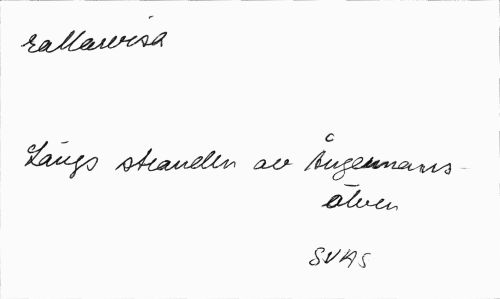 rallarvisa
Längs stranden av Ångermans-
älven
SVAS